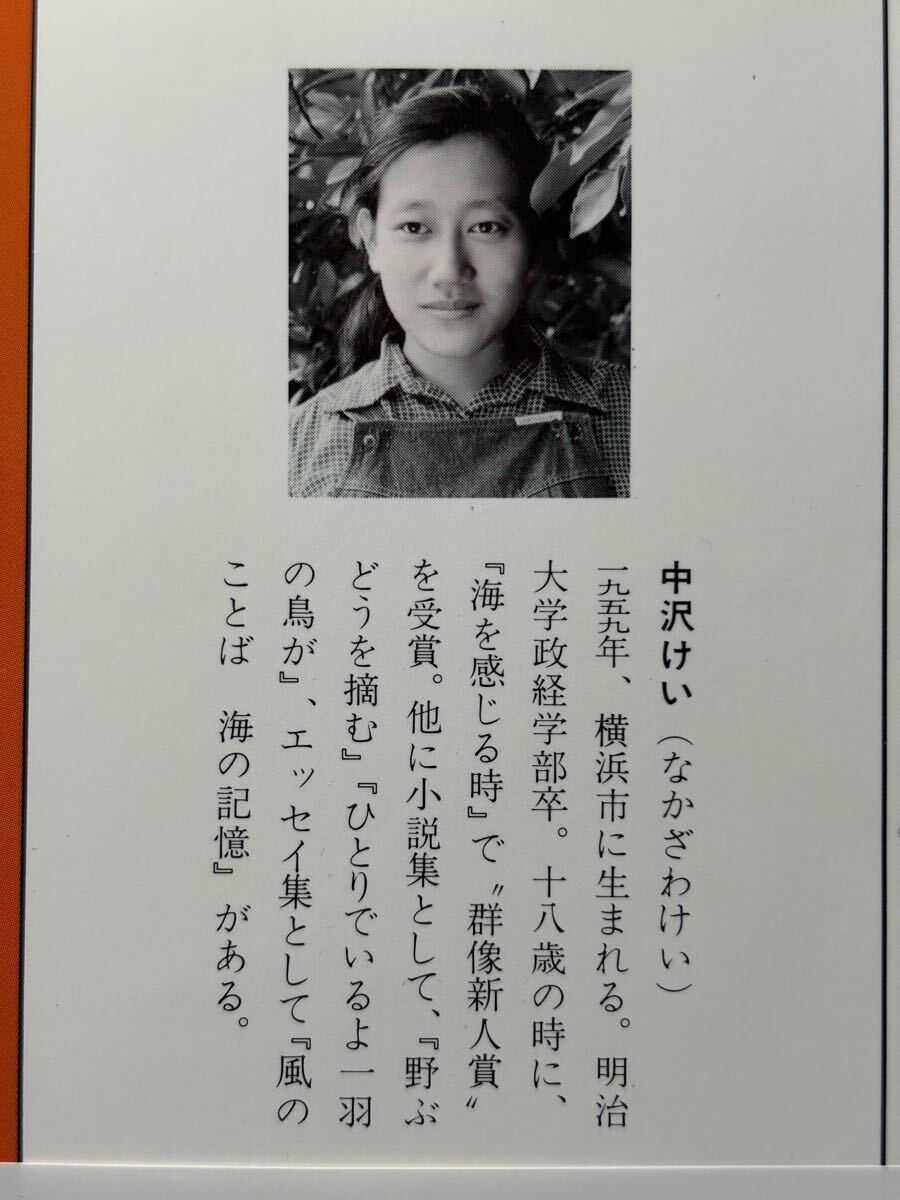 中沢けい（なかざわけい）
一九五九年、横浜市に生まれる。明治
大学政経学部卒。十八歳の時に、
『海を感じる時』で〝群像新人賞〟
を受賞。他に小説集として、『野ぶ
どうを摘む』『ひとりでいるよ一羽
の鳥が』、エッセイ集として『風の
ことば　海の記憶』がある。